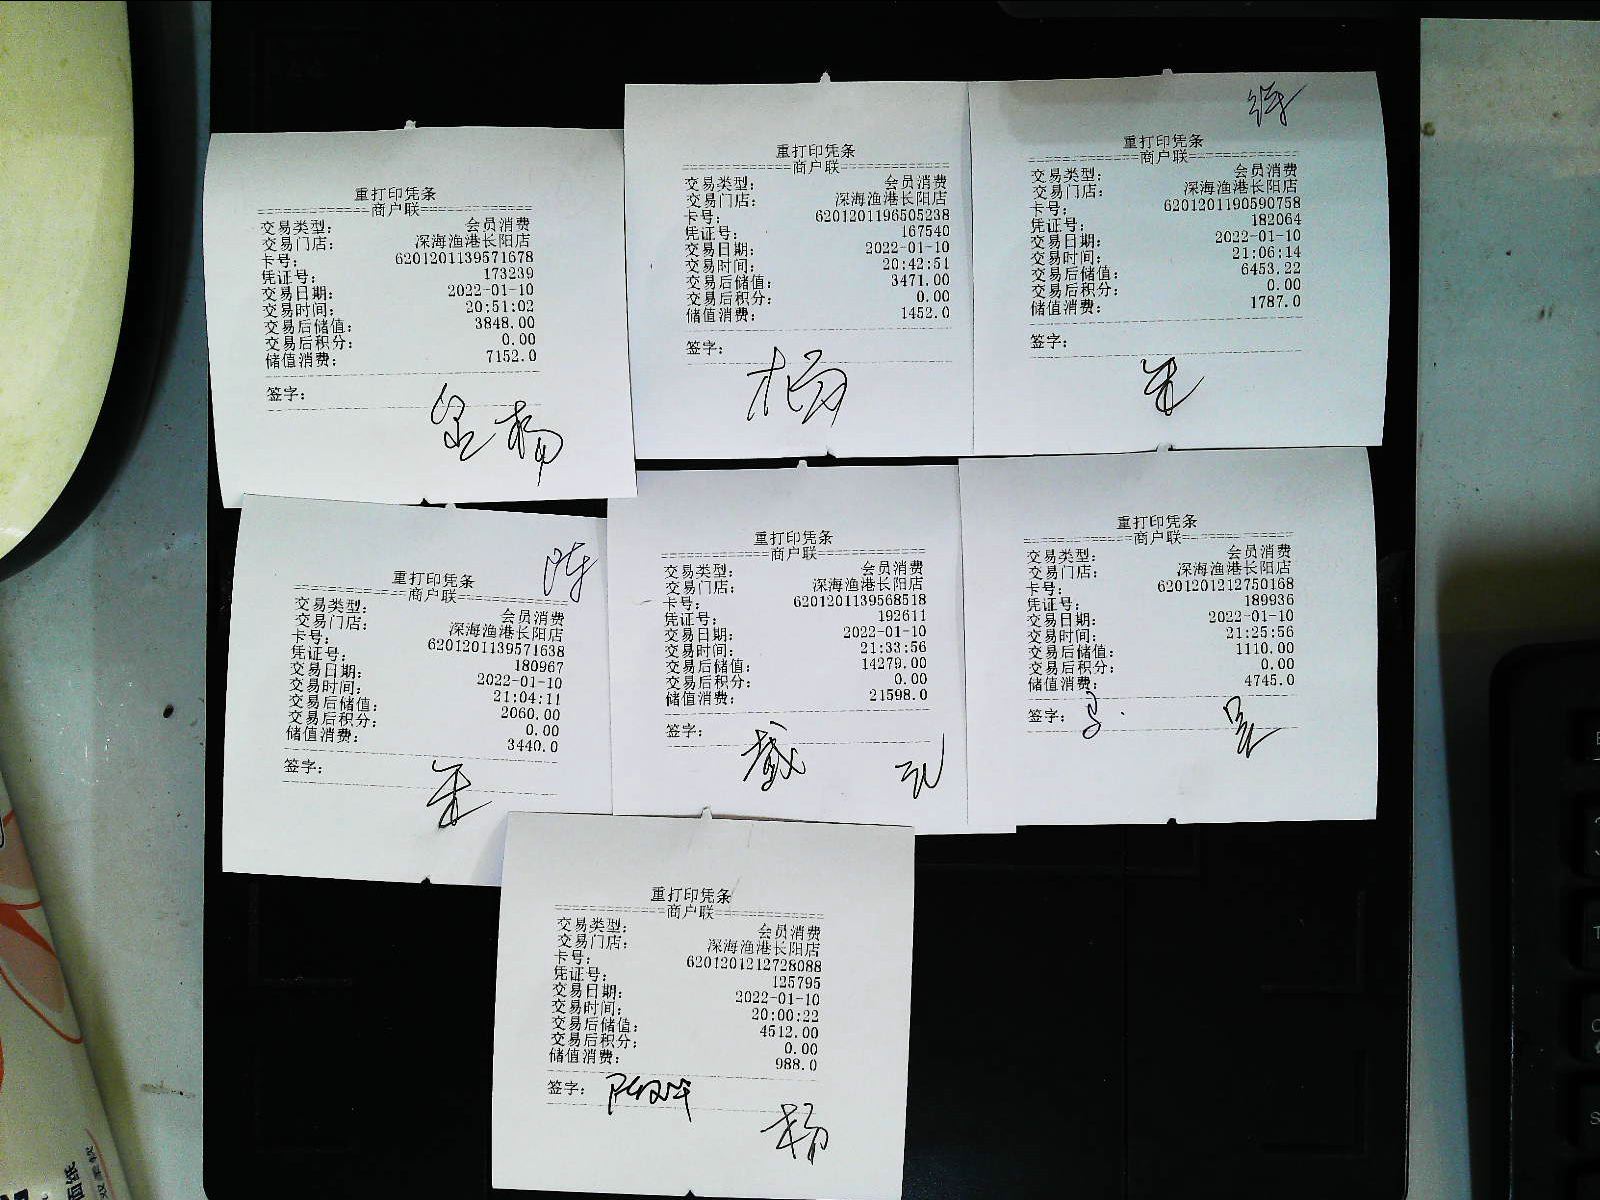 重打印凭条
商户联
交易类型： 会员消费
交易门店： 深海渔港长阳店
卡号： 6201201139571678
凭证号： 173239
交易日期： 2022-01-10
交易时间： 20:51:02
交易后储值： 3848.00
交易后积分： 0.00
储值消费： 7152.0
签字：
重打印凭条
商户联
交易类型： 会员消费
交易门店： 深海渔港长阳店
卡号： 6201201196505238
凭证号： 167540
交易日期： 2022-01-10
交易时间： 20:42:51
交易后储值： 3471.00
交易后积分： 0.00
储值消费： 1452.0
签字：
杨
重打印凭条
商户联
交易类型： 会员消费
交易门店： 深海渔港长阳店
卡号： 6201201190590758
凭证号： 182064
交易日期： 2022-01-10
交易时间： 21:06:14
交易后储值： 6453.22
交易后积分： 0.00
储值消费： 1787.0
签字：
陈
重打印凭条
商户联
交易类型： 会员消费
交易门店： 深海渔港长阳店
卡号： 6201201139571638
凭证号： 180967
交易日期： 2022-01-10
交易时间： 21:04:11
交易后储值： 2060.00
交易后积分： 0.00
储值消费： 3440.0
签字：
重打印凭条
商户联
交易类型： 会员消费
交易门店： 深海渔港长阳店
卡号： 6201201139568518
凭证号： 192611
交易日期： 2022-01-10
交易时间： 21:33:56
交易后储值： 14279.00
交易后积分： 0.00
储值消费： 21598.0
签字：
重打印凭条
商户联
交易类型： 会员消费
交易门店： 深海渔港长阳店
卡号： 6201201212750168
凭证号： 189936
交易日期： 2022-01-10
交易时间： 21:25:56
交易后储值： 1110.00
交易后积分： 0.00
储值消费： 4745.0
签字：
重打印凭条
商户联
交易类型： 会员消费
交易门店： 深海渔港长阳店
卡号： 6201201212728088
凭证号： 125795
交易日期： 2022-01-10
交易时间： 20:00:22
交易后储值： 4512.00
交易后积分： 0.00
储值消费： 988.0
签字：
杨